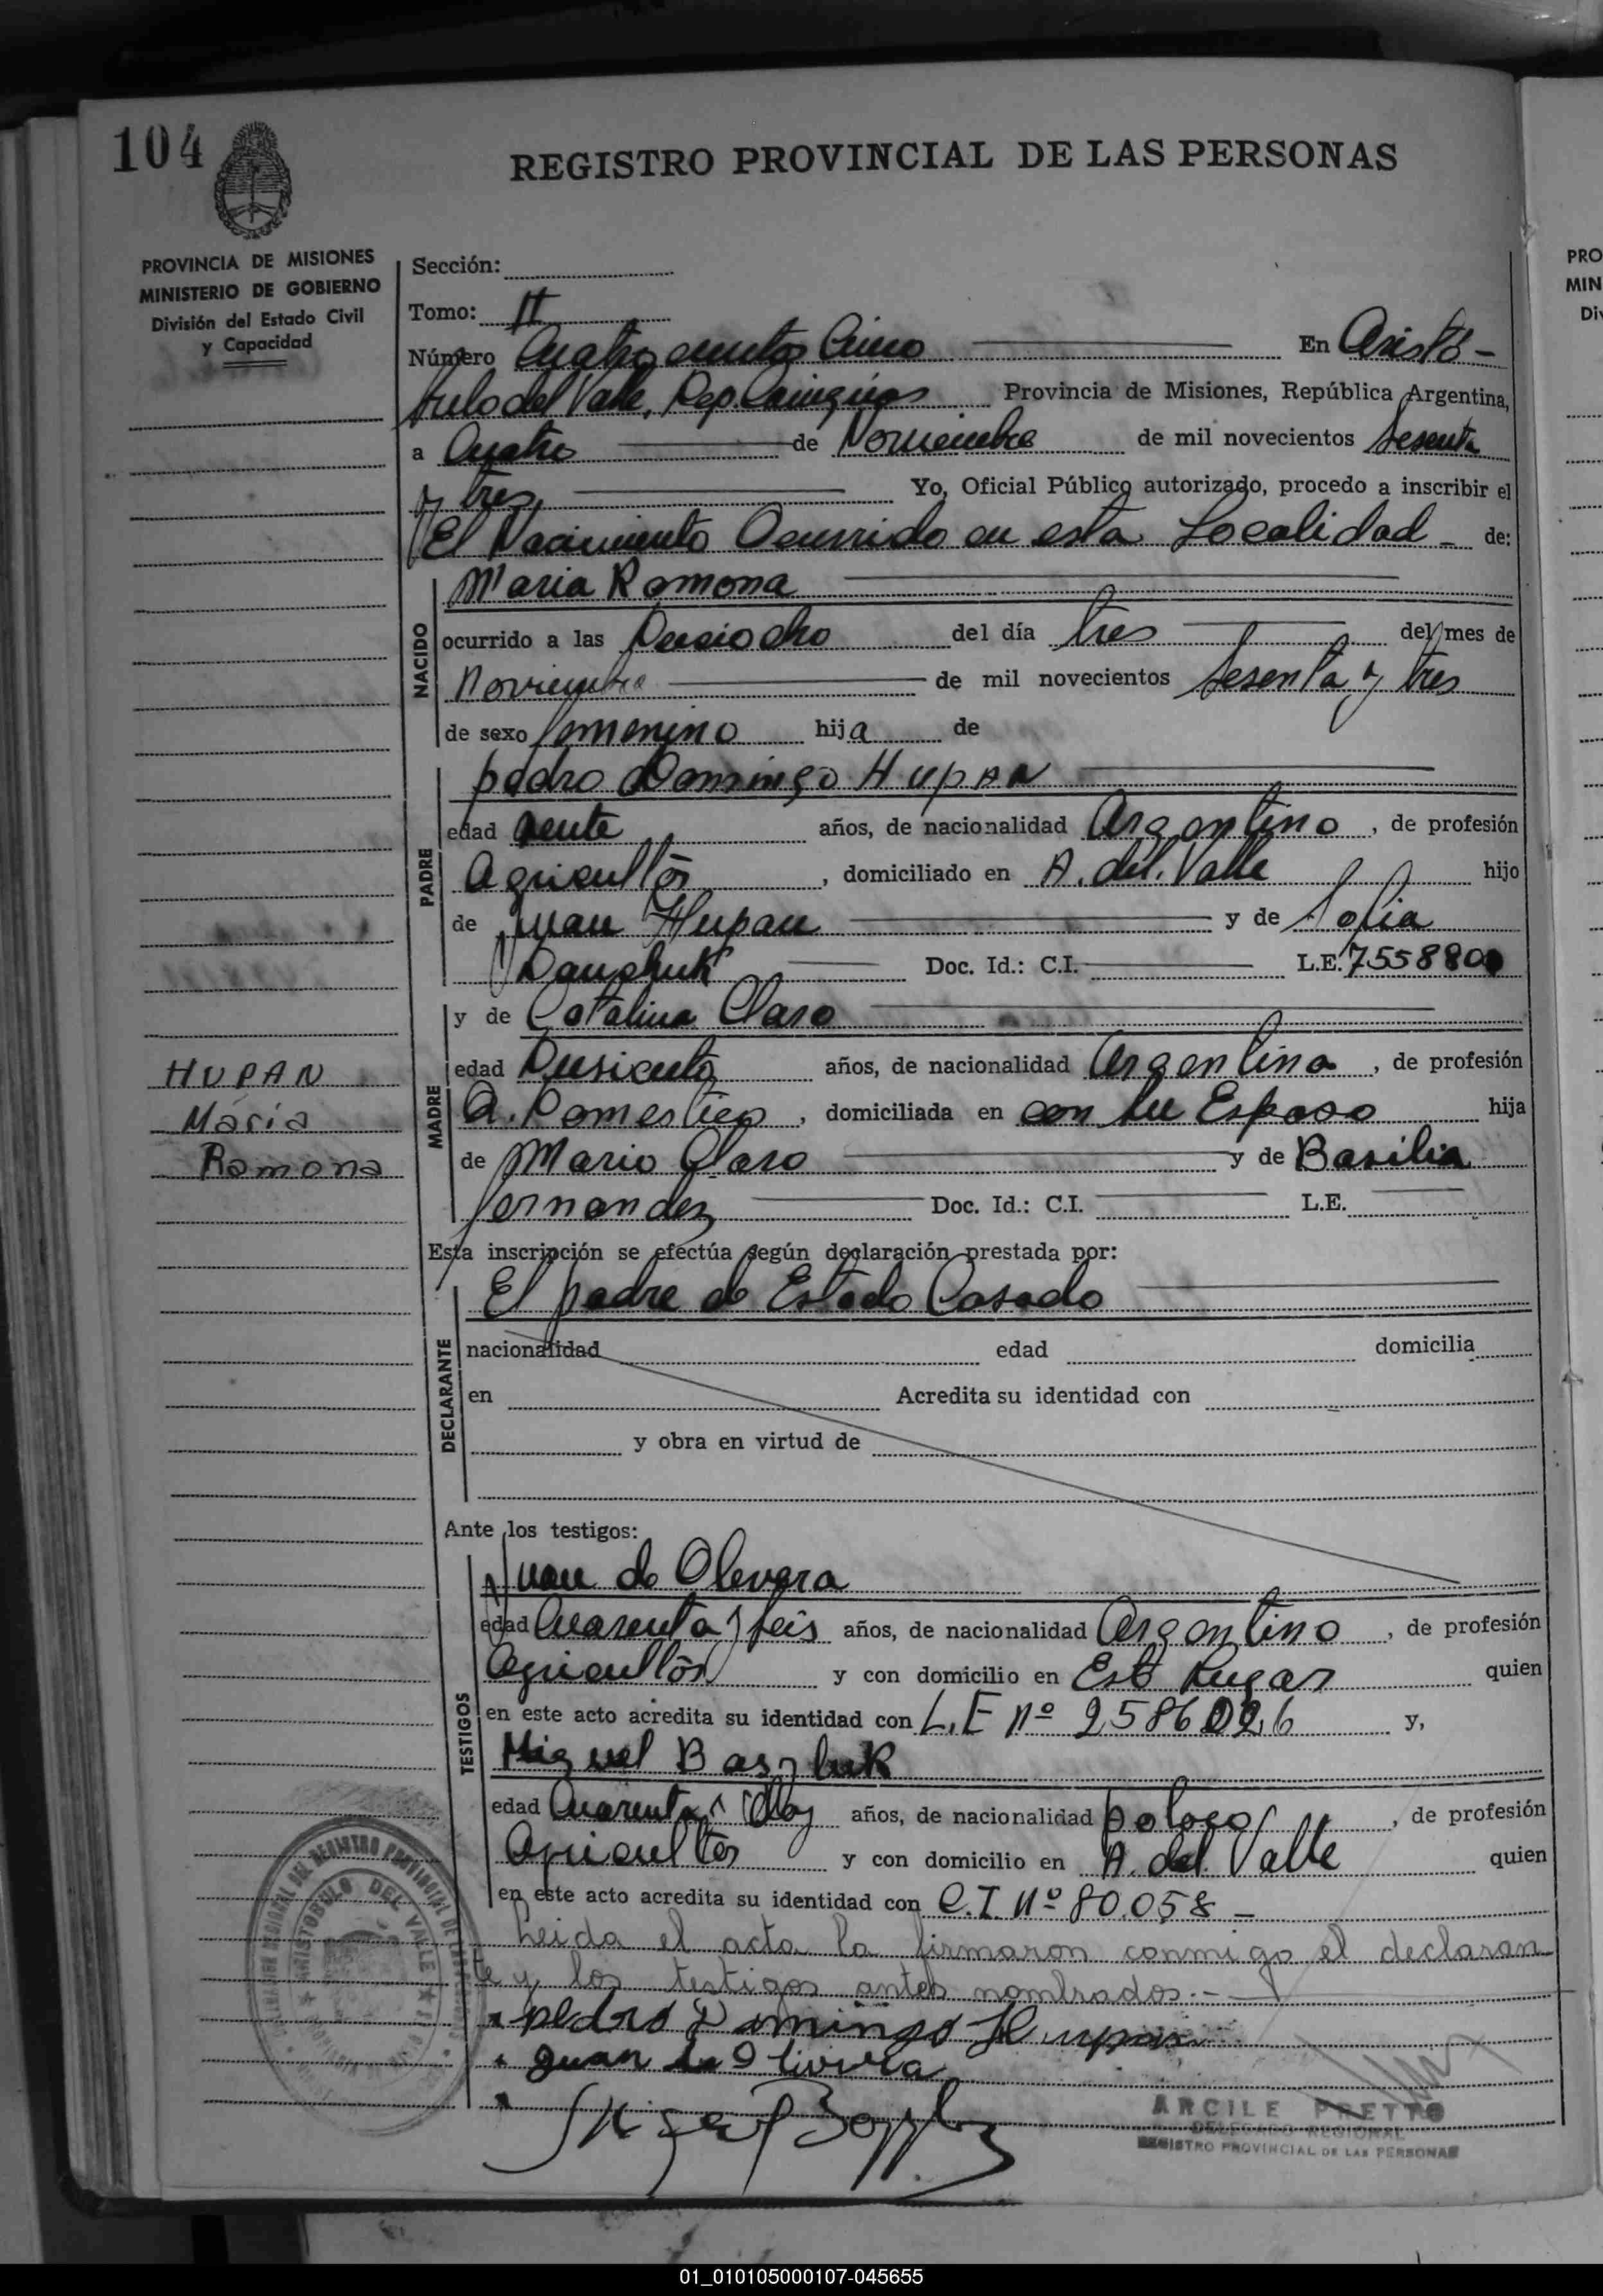 104
REGISTRO PROVINCIAL DE LAS PERSONAS
PROVINCIA DE MISIONES
MINISTERIO DE GOBIERNO
División del Estado Civil
y Capacidad
Sección:
Tomo: II
Número Cuatrocientos Cinco En Aristó-
bulo del Valle, Dep. Cainguas Provincia de Misiones, República Argentina,
a Cuatro de Noviembre de mil novecientos sesenta
y tres, Yo, Oficial Público autorizado, procedo a inscribir el
El Nacimiento Ocurrido en esta Localidad - de:
NACIDO
Maria Ramona
ocurrido a las Diesiocho del día tres del mes de
Noviembre de mil novecientos sesenta y tres
de sexo femenino hija de
PADRE
pedro Domingo HUPAN
edad veinte años, de nacionalidad Argentino, de profesión
Agricultor, domiciliado en A. del Valle hijo
de Juan Hupan y de Sofia
Doc. Id.: C.I. L.E. 755880
MADRE
y de Catalina Claro
edad años, de nacionalidad Argentina, de profesión
Q. Domestico, domiciliada en con su Esposo hija
de Mario Claro y de Basilia
fernandez Doc. Id.: C.I. L.E.
HUPAN
María
Ramona
Esta inscripción se efectúa según declaración prestada por:
DECLARANTE
El padre de Estado Casado
nacionalidad edad domicilia
en Acredita su identidad con
y obra en virtud de
Ante los testigos:
TESTIGOS
Juan de Olevera
edad Cuarenta y seis años, de nacionalidad Argentino, de profesión
Agricultor y con domicilio en Este Lugar quien
en este acto acredita su identidad con L.E Nº 2586026 y,
Miguel Baszluk
edad Cuarenta y años, de nacionalidad polaco, de profesión
Agricultor y con domicilio en A. del Valle quien
en este acto acredita su identidad con C.I Nº 80.058 -
Leida el acta la firmaron conmigo el declaran
te y los testigos antes nombrados.-
pedro Domingo Hupan
Juan de Olivera
ARCILE PRETTO
DELEGADO REGIONAL
REGISTRO PROVINCIAL DE LAS PERSONAS
ARISTOBULO DEL VALLE
PRO
MIN
Div
01_010105000107-045655